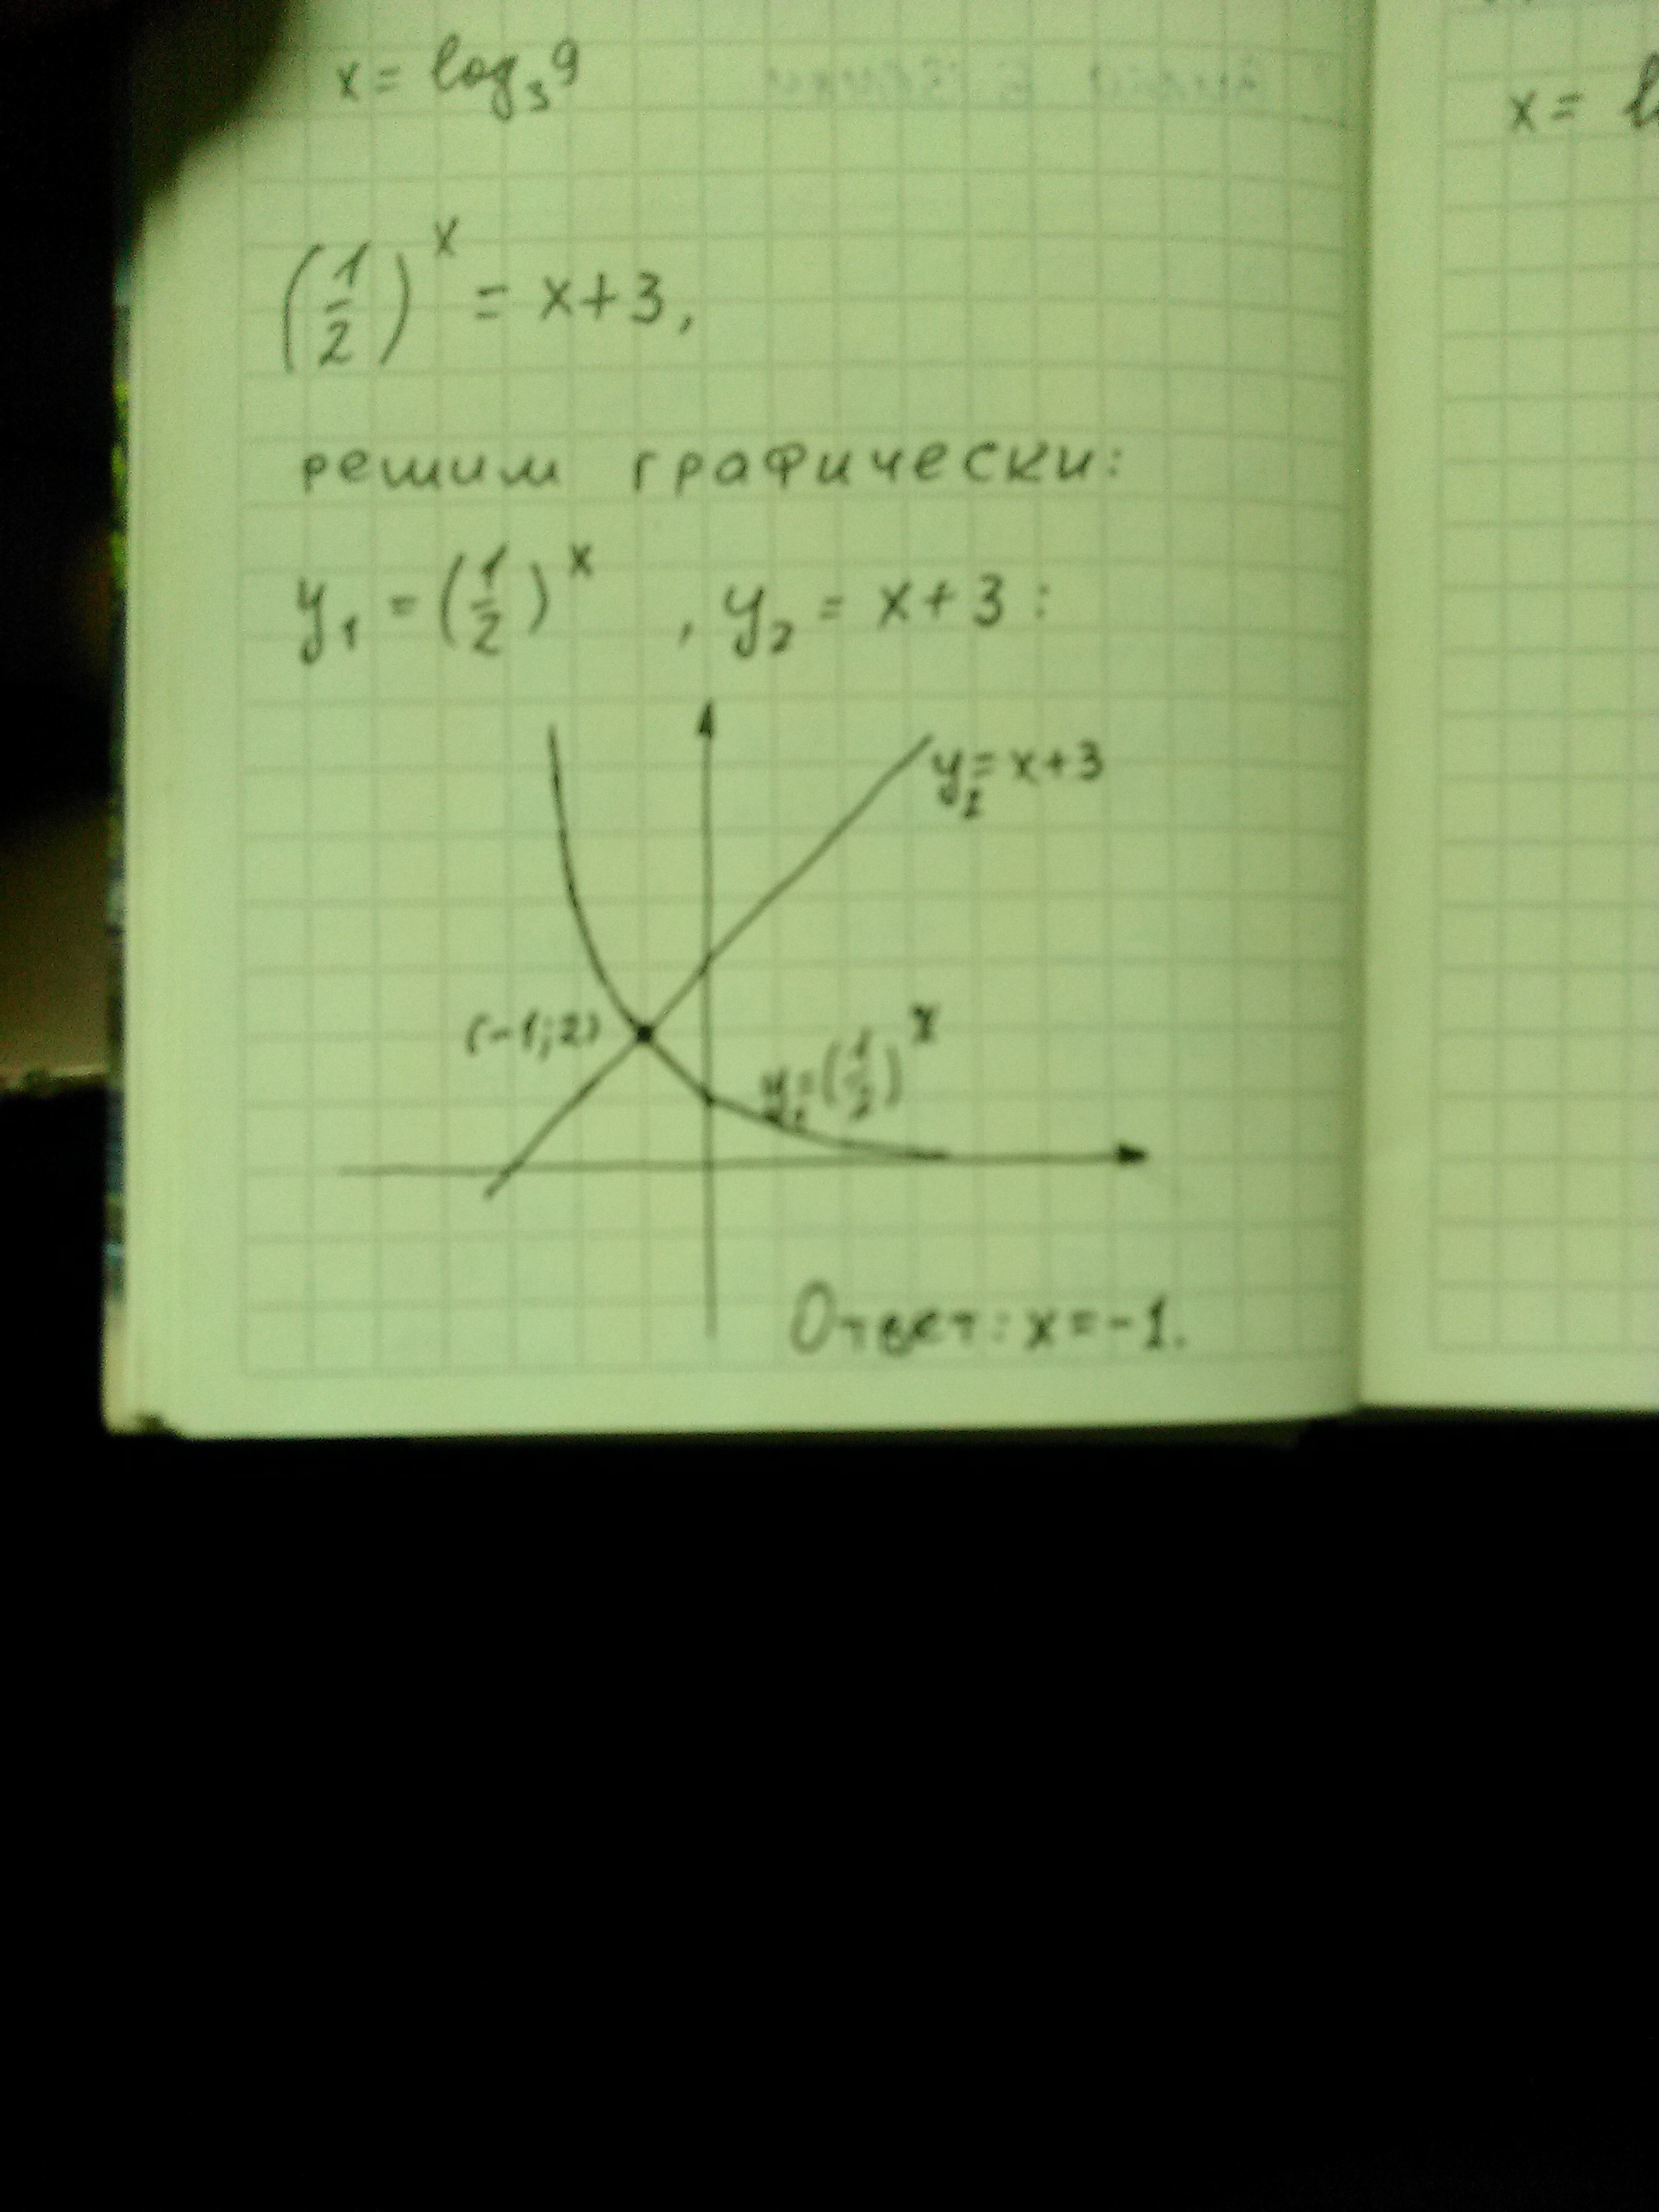 x = log₃9
(1/2)ˣ = x+3,
решим графически:
y₁ = (1/2)ˣ , y₂ = x+3 :
y₂= x+3
(-1;2)
y₁=(1/2)ˣ
Ответ: x=-1.
x =